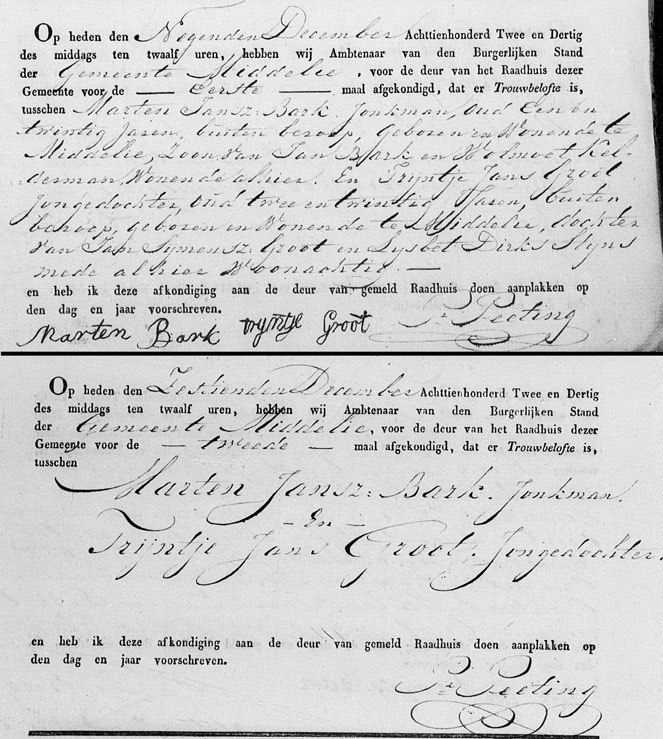 Op heden den Negenden December Achttienhonderd Twee en Dertig
des middags ten twaalf uren, hebben wij Ambtenaar van den Burgerlijken Stand
der Gemeente Middelie, voor de deur van het Raadhuis dezer
Gemeente voor de — Eerste — maal afgekondigd, dat er Trouwbelofte is,
tusschen Marten Jansz: Bark. Jonkman, oud Een en
twintig Jaren, buiten beroep, geboren en Wonende te
Middelie, Zoon van Jan Bark en Wolmoet Kel-
derman, Wonende alhier. En Trijntje Jans Groot
Jongedochter, oud twee en twintig Jaren, buiten
beroep, geboren en Wonende te Middelie, dochter
van Jan Sijmensz: Groot en Lysbet Dirks Slijns
mede alhier Woonachtig. —
en heb ik deze afkondiging aan de deur van gemeld Raadhuis doen aanplakken op
den dag en jaar voorschreven.
Marten Bark tryntje Groot Pr. Peeting
Op heden den Zestienden December Achttienhonderd Twee en Dertig
des middags ten twaalf uren, hebben wij Ambtenaar van den Burgerlijken Stand
der Gemeente Middelie, voor de deur van het Raadhuis dezer
Gemeente voor de — tweede — maal afgekondigd, dat er Trouwbelofte is,
tusschen
Marten Jansz: Bark. Jonkman.
— En —
Trijntje Jans Groot. Jongedochter.
en heb ik deze afkondiging aan de deur van gemeld Raadhuis doen aanplakken op
den dag en jaar voorschreven.
Pr. Peeting